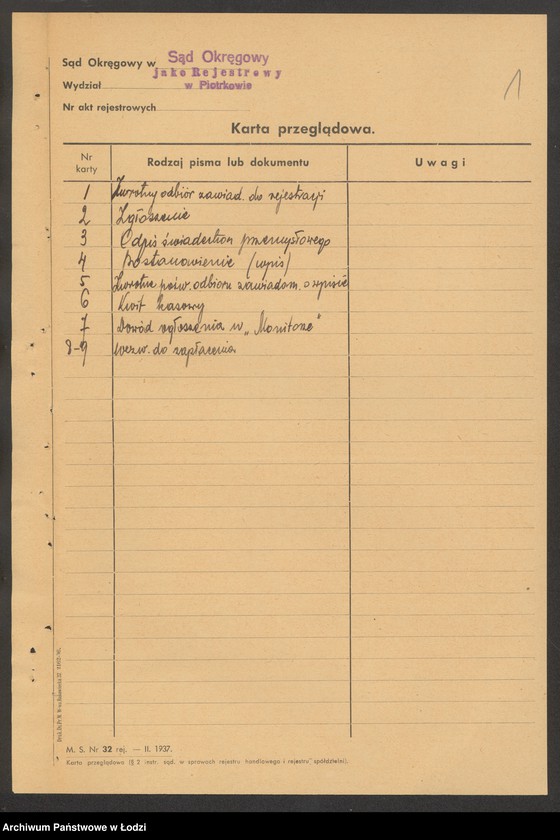 Sąd Okręgowy w Sąd Okręgowy
jako Rejestrowy
Wydział w Piotrkowie
Nr akt rejestrowych
1
Karta przeglądowa.
Nr karty Rodzaj pisma lub dokumentu Uwagi
1 Zwrotny odbiór zawiad. do rejestracji
2 Zgłoszenie
3 Odpis świadectwa przemysłowego
4 Postanowienie (wpis)
5 Zwrotne pośw. odbioru zawiadom. o wpisie
6 Kwit kasowy
7 Dowód ogłoszenia w „Monitorze"
8-9 wezw. do zapłacenia
M. S. Nr 32 rej. — II. 1937.
Karta przeglądowa (§ 2 instr. sąd. w sprawach rejestru handlowego i rejestru spółdzielni).
Archiwum Państwowe w Łodzi